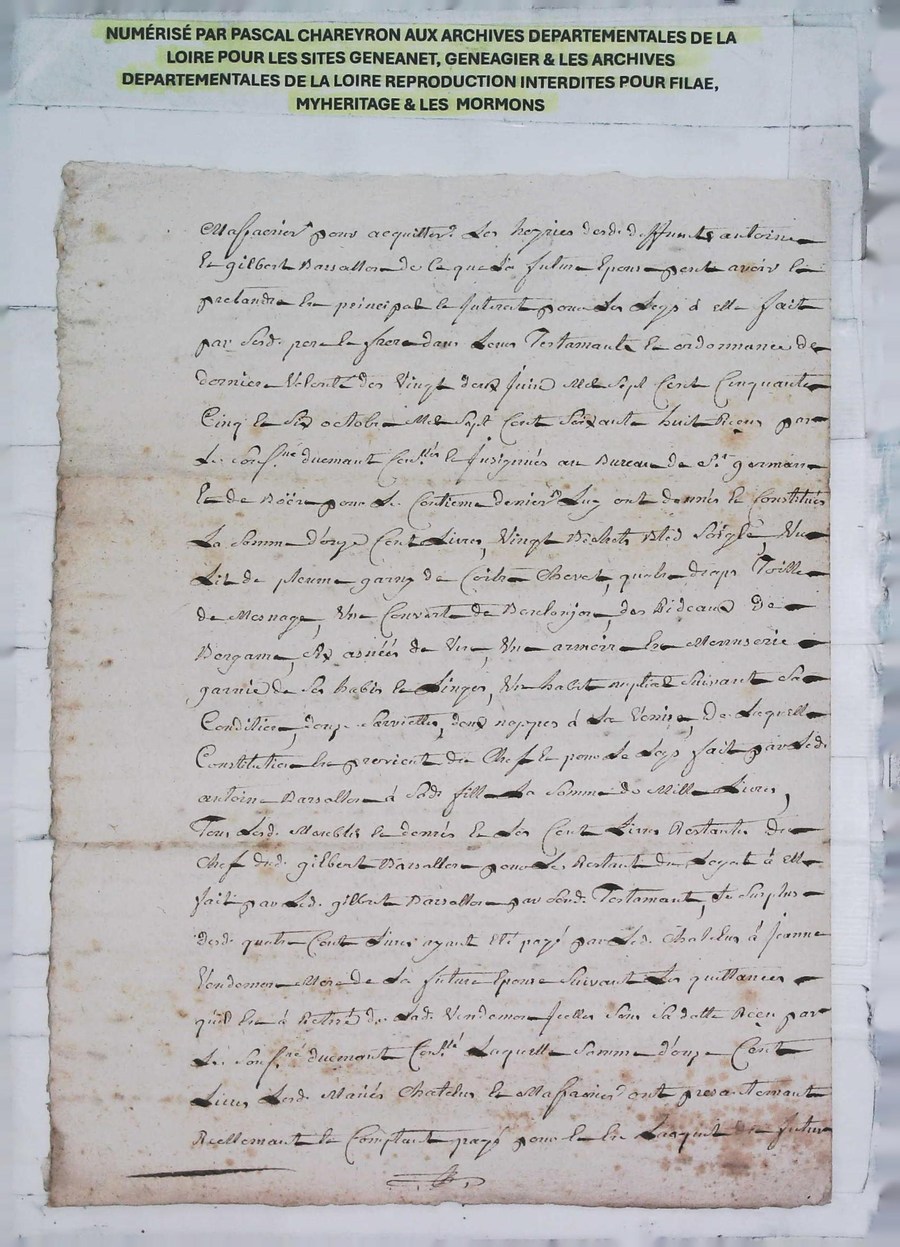 NUMÉRISÉ PAR PASCAL CHAREYRON AUX ARCHIVES DEPARTEMENTALES DE LA
LOIRE POUR LES SITES GENEANET, GENEAGIER & LES ARCHIVES
DEPARTEMENTALES DE LA LOIRE REPRODUCTION INTERDITES POUR FILAE,
MYHERITAGE & LES MORMONS
pour acquitter les desd. deffunts antoine
Et gilbert Barsallon de ce que la future Epouse peut avoir Et
pretandre En principal Et Interest pour les Legs à elle fait
par sesd. pere Et frere dans Leurs Testamants Et ordonnance de
derniere Volonté des Vingt deux Juin Mil Sept Cent Cinquante
Cinq Et Six octobre Mil Sept Cent Soixante huit Reçus par
Le Sous.né ducmant Con.ller Et Insignués au Bureau de St germain
Et de Böen pour Le Centieme denier Luy ont donnés Et Constitués
La Somme d'onze Cent Livres, Vingt Bichets Bled Seigle, Un
Lit de plume garny de Coitre Chevet, quatre draps Toille
de Mesnage, Une Couverte de des Rideaux De
Bergame, Six asnées de Vin, Un armoire En Menuserie
garnie de Ses habits Et Linges, Un habit nuptial Suivant Sa
Condition, douze Serviettes, deux nappes à La Venise, De Laquelle
Constitution En provient du Chef Et pour Le Legs fait par Led.
antoine Barsallon à Sad. fille La Somme de Mille Livres,
Tous Lesd. Meubles Et denrés Et Les Cent Livres Restantes du
Chef dud. gilbert Barsallon pour Le Restant du Legat à elle
fait par Led. gilbert Barsallon par Sond. Testamant, Le Surplus
desd. quatre Cent Livres ayant Eté payé par Led. Chatelus à Jeanne
Vendemon Mere de La future Epouse Suivant Les quittances
qu'il En à Retiré de Lad. Vendemon Icelles Sous Sa datte Reçu par
Le Sous.né ducmant Con.ller Laquelle Somme d'onze Cent
Livres Lesd. Mariés Chatelus Et ont presentemant
Reellemant Et Comptant payé pour Et En Lacquit du futur